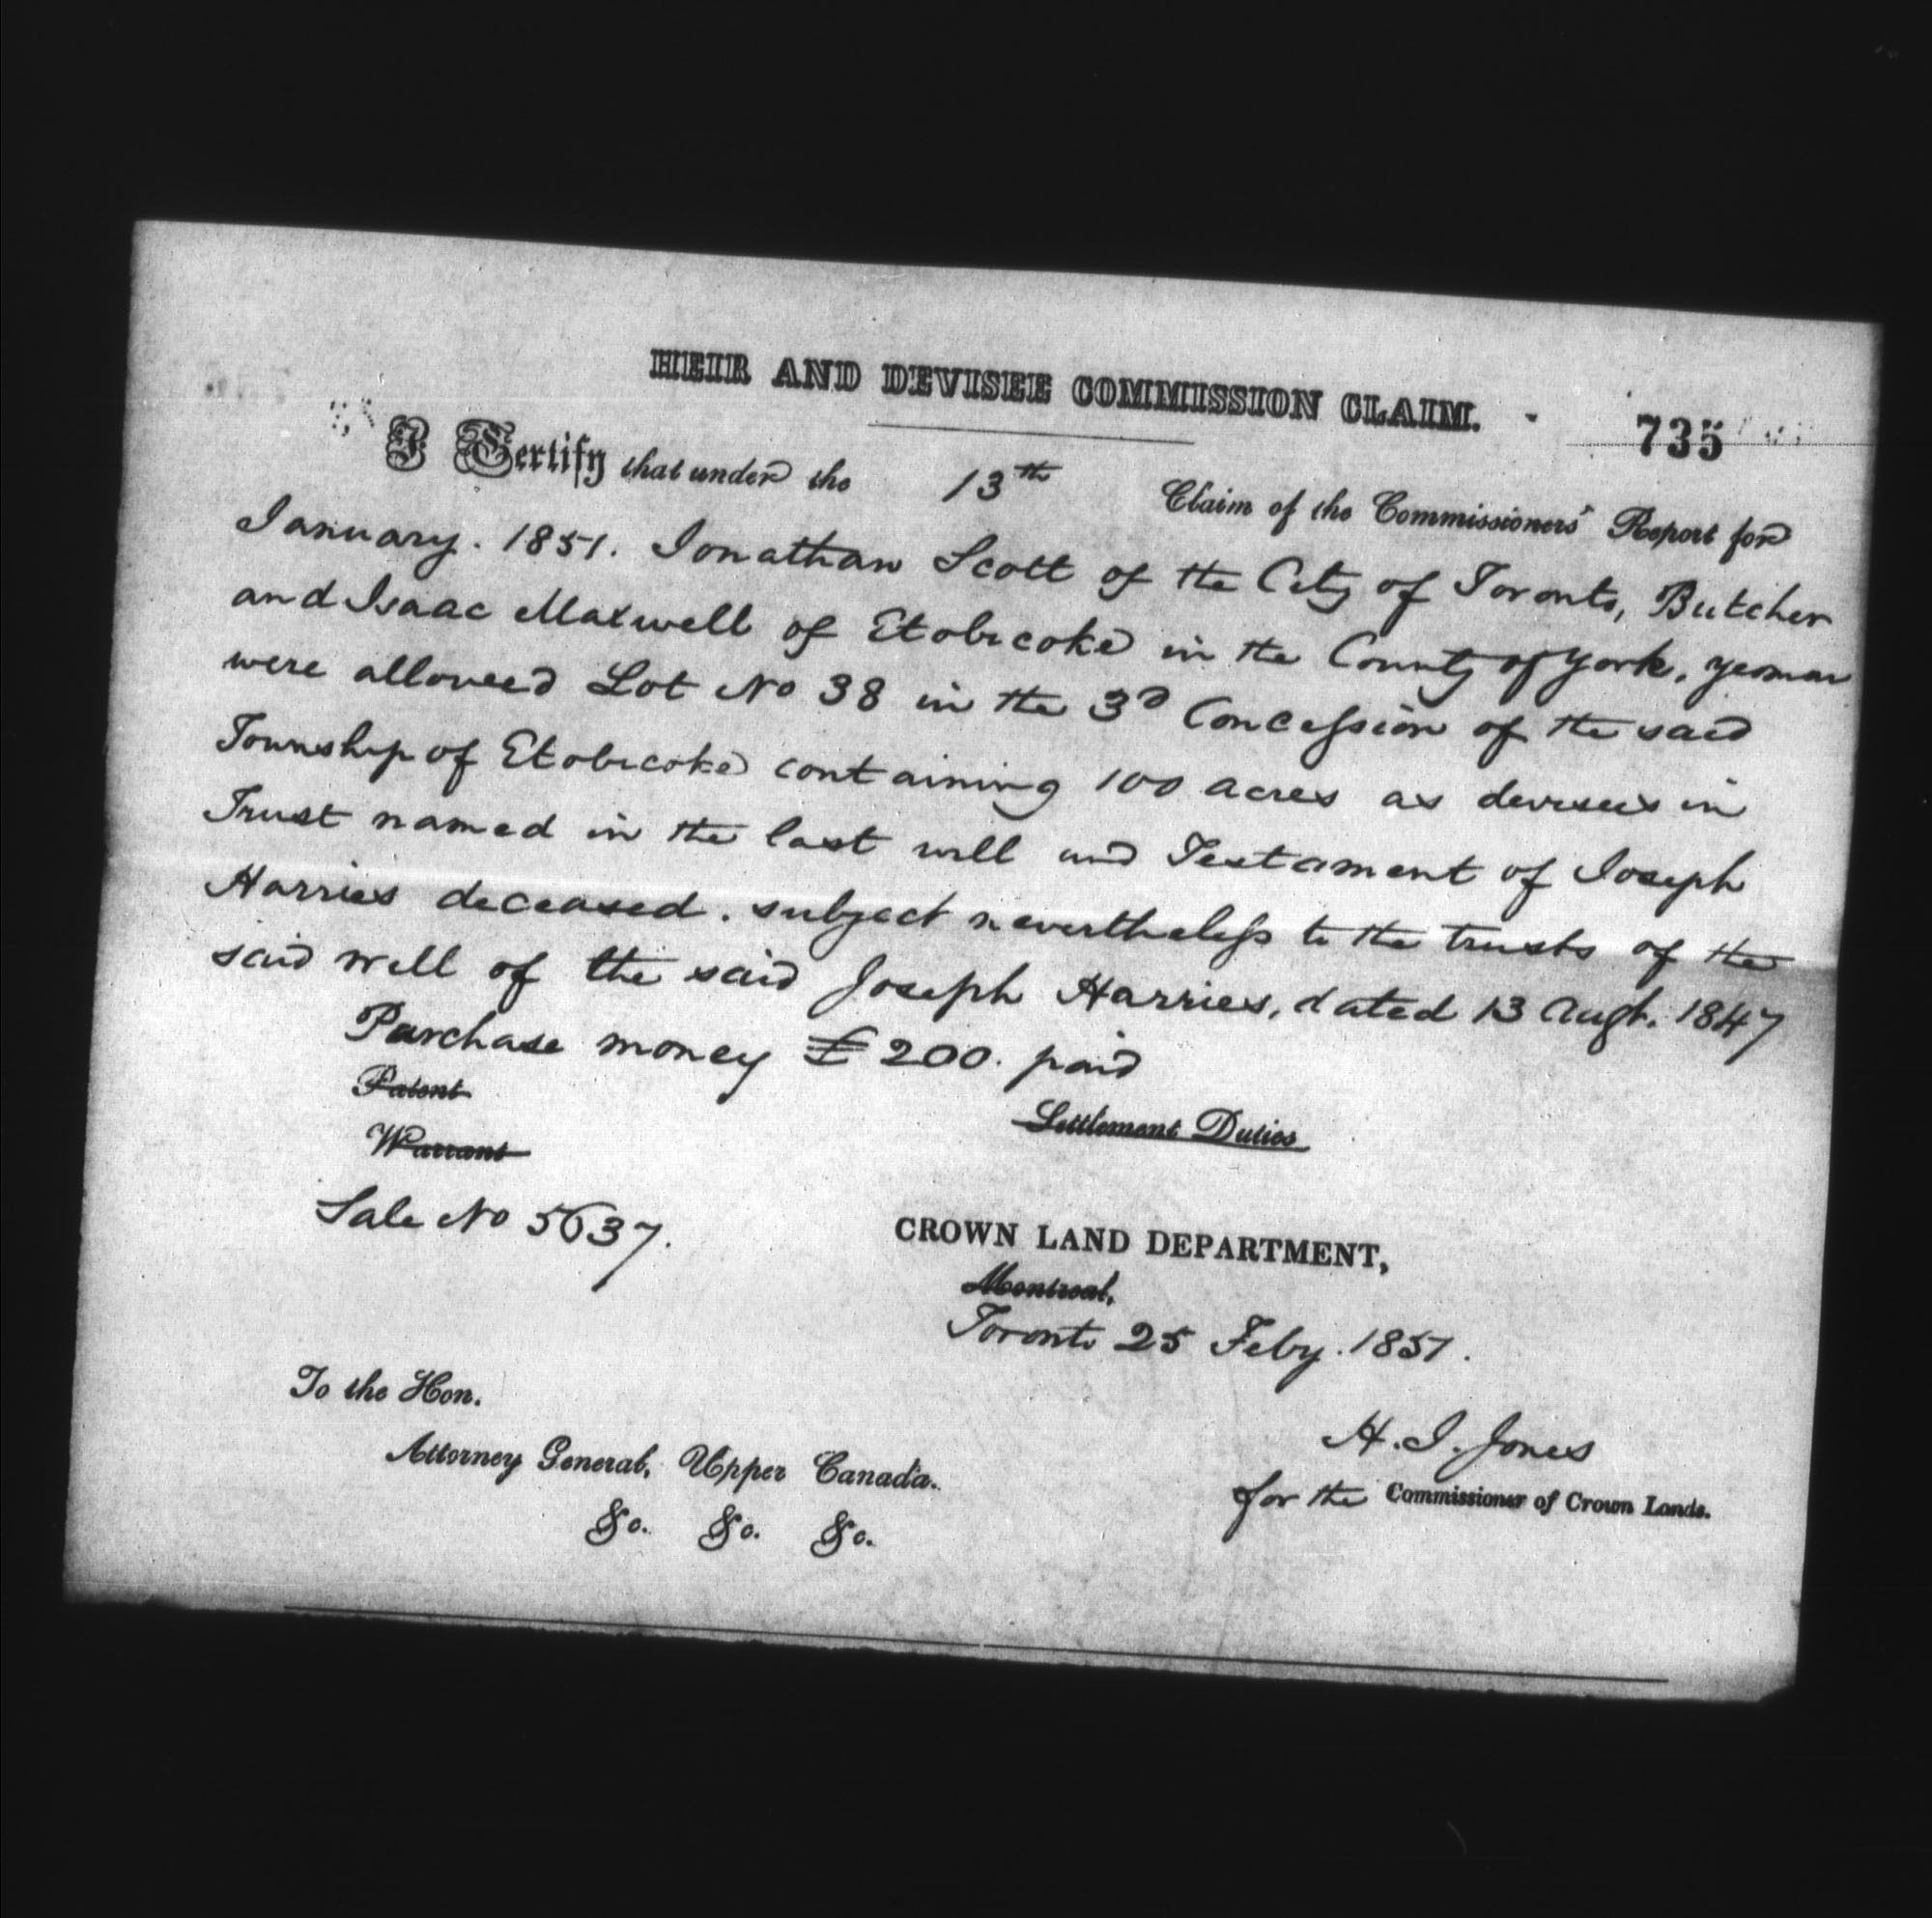 HEIR AND DEVISEE COMMISSION CLAIM.
735
I Certify that under the 13th Claim of the Commissioners' Report for
January. 1851. Jonathan Scott of the City of Toronto, Butcher
and Isaac Maxwell of Etobicoke in the County of York, yeoman
were allowed Lot No 38 in the 3d Concession of the said
Township of Etobicoke containing 100 acres as devisees in
Trust named in the last will and Testament of Joseph
Harries deceased. subject nevertheless to the trusts of the
said will of the said Joseph Harries, dated 13 Augt. 1847
Purchase money £200. paid
Patent
Settlement Duties
Warrant
Sale No 5637.
CROWN LAND DEPARTMENT,
Montreal,
Toronto 25 Feby. 1851.
To the Hon.
Attorney General, Upper Canada.
&c. &c. &c.
H. J. Jones
for the Commissioner of Crown Lands.